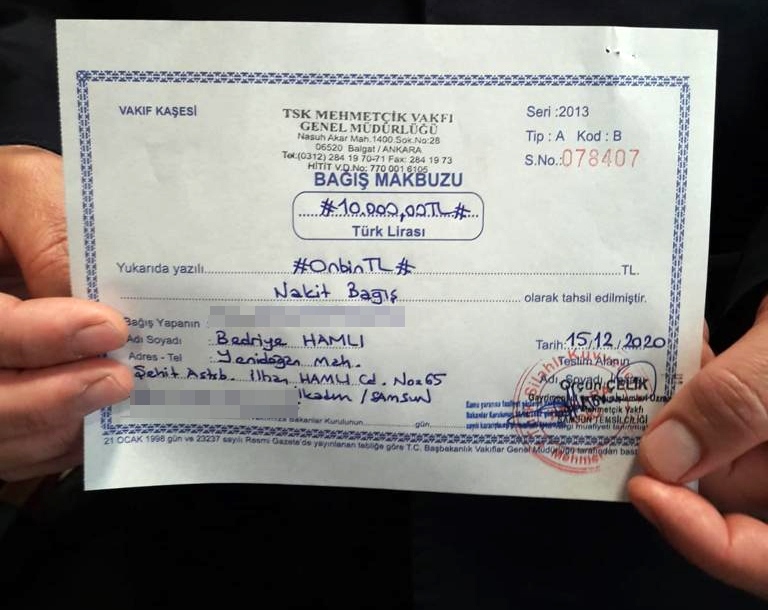 VAKIF KAŞESİ
TSK MEHMETÇİK VAKFI
GENEL MÜDÜRLÜĞÜ
Nasuh Akar Mah.1400.Sok.No:28
06520 Balgat / ANKARA
Tel:(0312) 284 19 70-71 Fax: 284 19 73
HİTİT V.D.No: 770 001 6105
Seri :2013
Tip : A Kod : B
S.No.:078407
BAĞIŞ MAKBUZU
#10.000,00TL#
Türk Lirası
Yukarıda yazılı #OnbinTL# TL.
Nakit Bağış olarak tahsil edilmiştir.
Bağış Yapanın
Adı Soyadı : Bedriye HAMLI
Tarih:15/12/2020
Adres - Tel : Yenidoğan Mah.
Teslim Alanın
Şehit Astsb. İlhan HAMLI Cd. No:65
Adı Soyadı
Orçun ÇELİK
İlkadım / SAMSUN
Mehmetçik Vakfı
SAMSUN TEMSİLCİLİĞİ
Bakanlar Kurulunun gün,
21 OCAK 1998 gün ve 23237 sayılı Resmi Gazete'de yayınlanan tebliğe göre T.C. Başbakanlık Vakıflar Genel Müdürlüğü tarafından